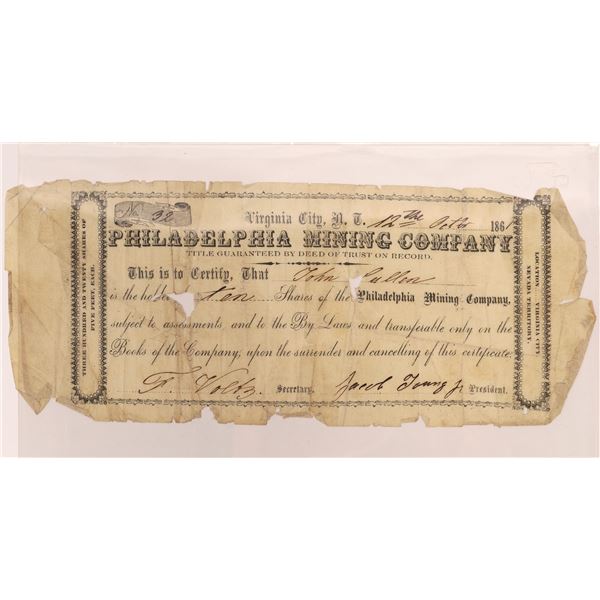 THREE HUNDRED AND TWENTY SHARES OF
FIVE FEET, EACH.
No. 32
Virginia City, N. T. 12th Octr 1861
PHILADELPHIA MINING COMPANY
TITLE GUARANTEED BY DEED OF TRUST ON RECORD.
This is to Certify, That John Cullen
is the holder ten Shares of the Philadelphia Mining Company,
subject to assessments, and to the By Laws and transferable only on the
Books of the Company, upon the surrender and cancelling of this certificate.
F. Voltz Secretary. Jacob Young Jr President.
LOCATION VIRGINIA CITY,
NEVADA TERRITORY.